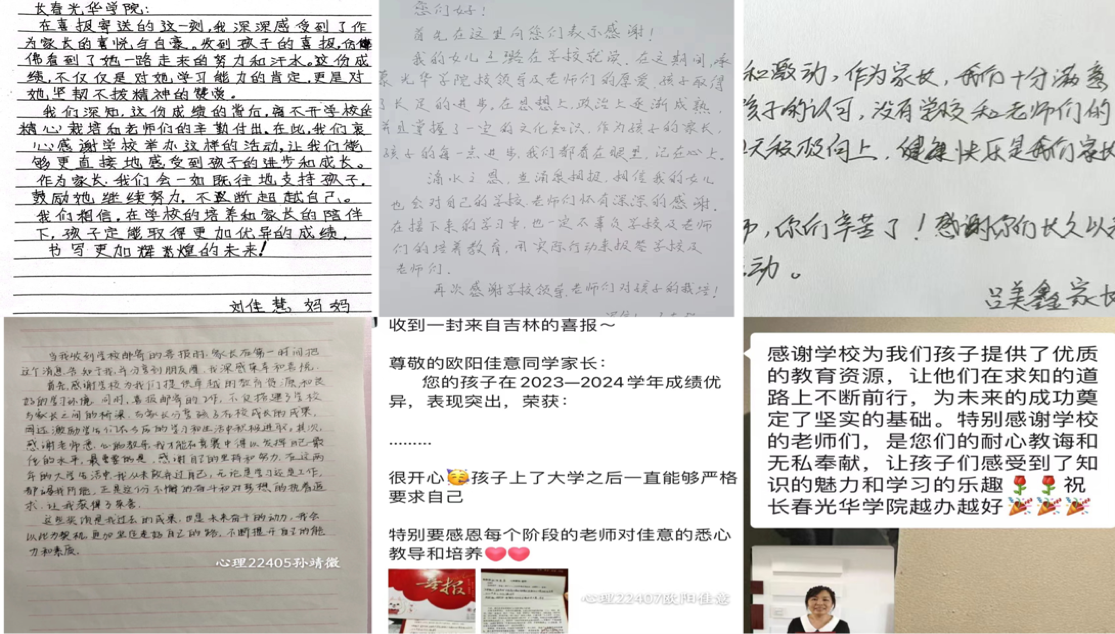 长春光华学院：
在喜报寄送的这一刻，我深深感受到了作
为家长的喜悦与自豪。收到孩子的喜报，仿佛
看到了她一路走来的努力和汗水。这份成
绩，不仅仅是对她学习能力的肯定，更是对
她坚韧不拔精神的赞赏。
我们深知，这份成绩的背后，离不开学校的
精心栽培和老师们的辛勤付出。在此，我们衷
心感谢学校举办这样的活动，让我们能
够更直接地感受到孩子的进步和成长。
作为家长，我们会一如既往地支持孩子，
鼓励她继续努力，不断超越自己。
我们相信，在学校的培养和家长的陪伴
下，孩子定能取得更加优异的成绩，
书写更加辉煌的未来！
刘佳慧 妈妈
您们好！
首先在这里向您们表示感谢！
我的女儿 在学校就读，在这期间，承
蒙光华学院校领导及老师们的厚爱，孩子取得
了长足的进步，在思想上、政治上逐渐成熟，
并且掌握了一定的文化知识。作为孩子的家长，
孩子的每一点进步，我们都看在眼里，记在心上。
滴水之恩，当涌泉相报，相信我的女儿
也会对自己的学校、老师们怀有深深的感谢。
在接下来的学习中，也一定不辜负学校及老师
们的培养教育，用实际行动来报答学校及
老师们。
再次感谢学校领导、老师们对孩子的栽培！
和激动，作为家长，我们十分满意
孩子的认可，没有学校和老师们的
天积极向上，健康快乐是我们家长
你们辛苦了！感谢你们长久以来
动。
吕美鑫家长
当我收到学校邮寄的喜报时，家长在第一时间把
这个消息告知于我，并分享到朋友圈，我深感荣幸和喜悦。
首先，感谢学校为我们提供卓越的教育资源和良
好的学习环境，同时，喜报邮寄的工作，不仅搭建了学校
与家长之间的桥梁，与家长分享孩子在校成长的成果，
感谢老师悉心的教导，我才能在竞赛中得以发挥自己最
佳的水平，最重要的是，感谢自己的坚持和努力，在这两
年的大学生活中，我从未放弃过自己，无论是学习还是工作，
求，让我获得了荣誉。
这些奖项是我过去的成果，也是未来奋斗的动力，我会
力和素质。
心理22405孙靖微
收到一封来自吉林的喜报～
尊敬的欧阳佳意同学家长：
您的孩子在2023—2024学年成绩优
异，表现突出，荣获：
………
很开心🥳孩子上了大学之后一直能够严格
要求自己
特别要感恩每个阶段的老师对佳意的悉心
教导和培养❤️❤️
喜报
心理22407欧阳佳意
感谢学校为我们孩子提供了优质
的教育资源，让他们在求知的道
路上不断前行，为未来的成功奠
定了坚实的基础。特别感谢学校
的老师们，是您们的耐心教诲和
无私奉献，让孩子们感受到了知
识的魅力和学习的乐趣🌹🌹祝
长春光华学院越办越好🎉🎉🎉